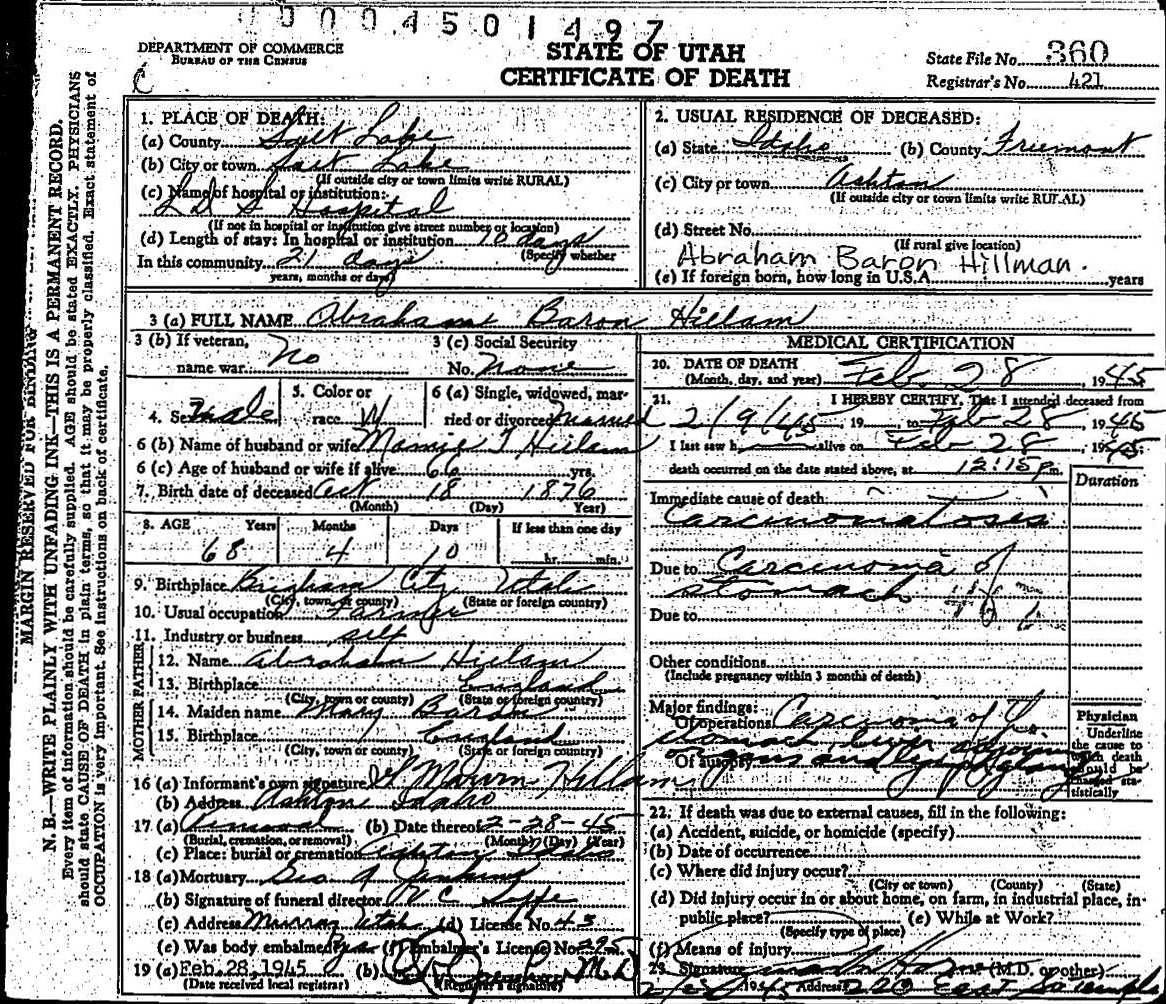 0004501497
DEPARTMENT OF COMMERCE
BUREAU OF THE CENSUS
C
STATE OF UTAH
CERTIFICATE OF DEATH
State File No. 360
Registrar's No. 421
MARGIN RESERVED FOR BINDING
N. B.—WRITE PLAINLY WITH UNFADING INK—THIS IS A PERMANENT RECORD.
Every item of information should be carefully supplied. AGE should be stated EXACTLY. PHYSICIANS
should state CAUSE OF DEATH in plain terms, so that it may be properly classified. Exact statement of
OCCUPATION is very important. See instructions on back of certificate.
1. PLACE OF DEATH:
(a) County Salt Lake
(b) City or town Salt Lake
(If outside city or town limits write RURAL)
(c) Name of hospital or institution:
L D S Hospital
(If not in hospital or institution give street number or location)
(d) Length of stay: In hospital or institution 10 days
(Specify whether
In this community 21 days
years, months or days)
2. USUAL RESIDENCE OF DECEASED:
(a) State Idaho (b) County Fremont
(c) City or town Ashton
(If outside city or town limits write RURAL)
(d) Street No.
(If rural give location)
Abraham Baron Hillman.
(e) If foreign born, how long in U.S.A. years
3 (a) FULL NAME Abraham Baron Hillam
3 (b) If veteran,
name war No
3 (c) Social Security
No. None
4. Sex Male
5. Color or
race W
6 (a) Single, widowed, mar-
ried or divorced Married
6 (b) Name of husband or wife Mamie T Hillam
6 (c) Age of husband or wife if alive 66 yrs.
7. Birth date of deceased Oct 18 1876
(Month) (Day) Year)
8. AGE Years Months Days If less than one day
68 4 10 hr. min.
9. Birthplace Brigham City Utah
(City, town or county) (State or foreign country)
10. Usual occupation Farmer
11. Industry or business self
FATHER
12. Name Abraham Hillam
13. Birthplace England
(City, town or county) (State or foreign country)
MOTHER
14. Maiden name Mary Baron
15. Birthplace England
(City, town or county) (State or foreign country)
16 (a) Informant's own signature Hillam
(b) Address Ashton Idaho
17 (a) Removal (b) Date thereof 2-28-45
(Burial, cremation, or removal) (Month) (Day) (Year)
(c) Place: burial or cremation Ashton Idaho
18 (a) Mortuary Geo A Jenkins
(b) Signature of funeral director
(c) Address Murray Utah (d) License No. 43
(e) Was body embalmed? Yes (f) Embalmer's License No. 225
19 (a) Feb. 28, 1945 (b) M.D.
(Date received local registrar) (Registrar's signature)
MEDICAL CERTIFICATION
20. DATE OF DEATH
(Month, day, and year) Feb. 28, 1945
21. I HEREBY CERTIFY, That I attended deceased from
2/9/45, 19 to Feb 28, 1945
I last saw h alive on Feb 28, 1945
death occurred on the date stated above, at 12:15 p m.
Duration
Immediate cause of death
Carcinomatosis
Due to Carcinoma of
stomach 46 b
Due to
Other conditions
(Include pregnancy within 3 months of death)
Major findings:
Of operations Carcinoma of
stomach, liver
Of autopsy
Physician
Underline
the cause to
which death
should be
charged sta-
tistically
22. If death was due to external causes, fill in the following:
(a) Accident, suicide, or homicide (specify)
(b) Date of occurrence
(c) Where did injury occur?
(City or town) (County) (State)
(d) Did injury occur in or about home, on farm, in industrial place, in
public place? (e) While at Work?
(Specify type of place)
(f) Means of injury
23. Signature (M.D. or other)
1945 Address 220 East So Temple